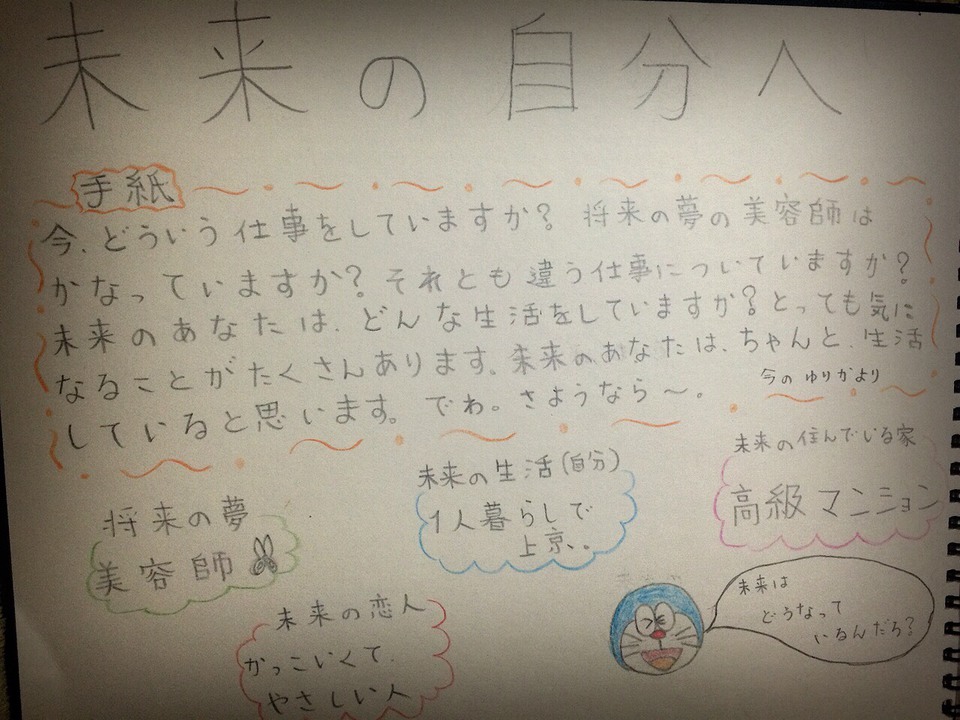 未来の自分へ
手紙
今、どういう仕事をしていますか？ 将来の夢の美容師は
かなっていますか？それとも違う仕事についていますか？
未来のあなたは、どんな生活をしていますか？とっても気に
なることがたくさんあります。未来のあなたは、ちゃんと、生活
していると思います。でわ。さようなら〜。
今のゆりかより
将来の夢
美容師
未来の生活(自分)
1人暮らしで
上京、、
未来の住んでいる家
高級マンション
未来の恋人
かっこいくて、
やさしい人
未来は
どうなって
いるんだろ？